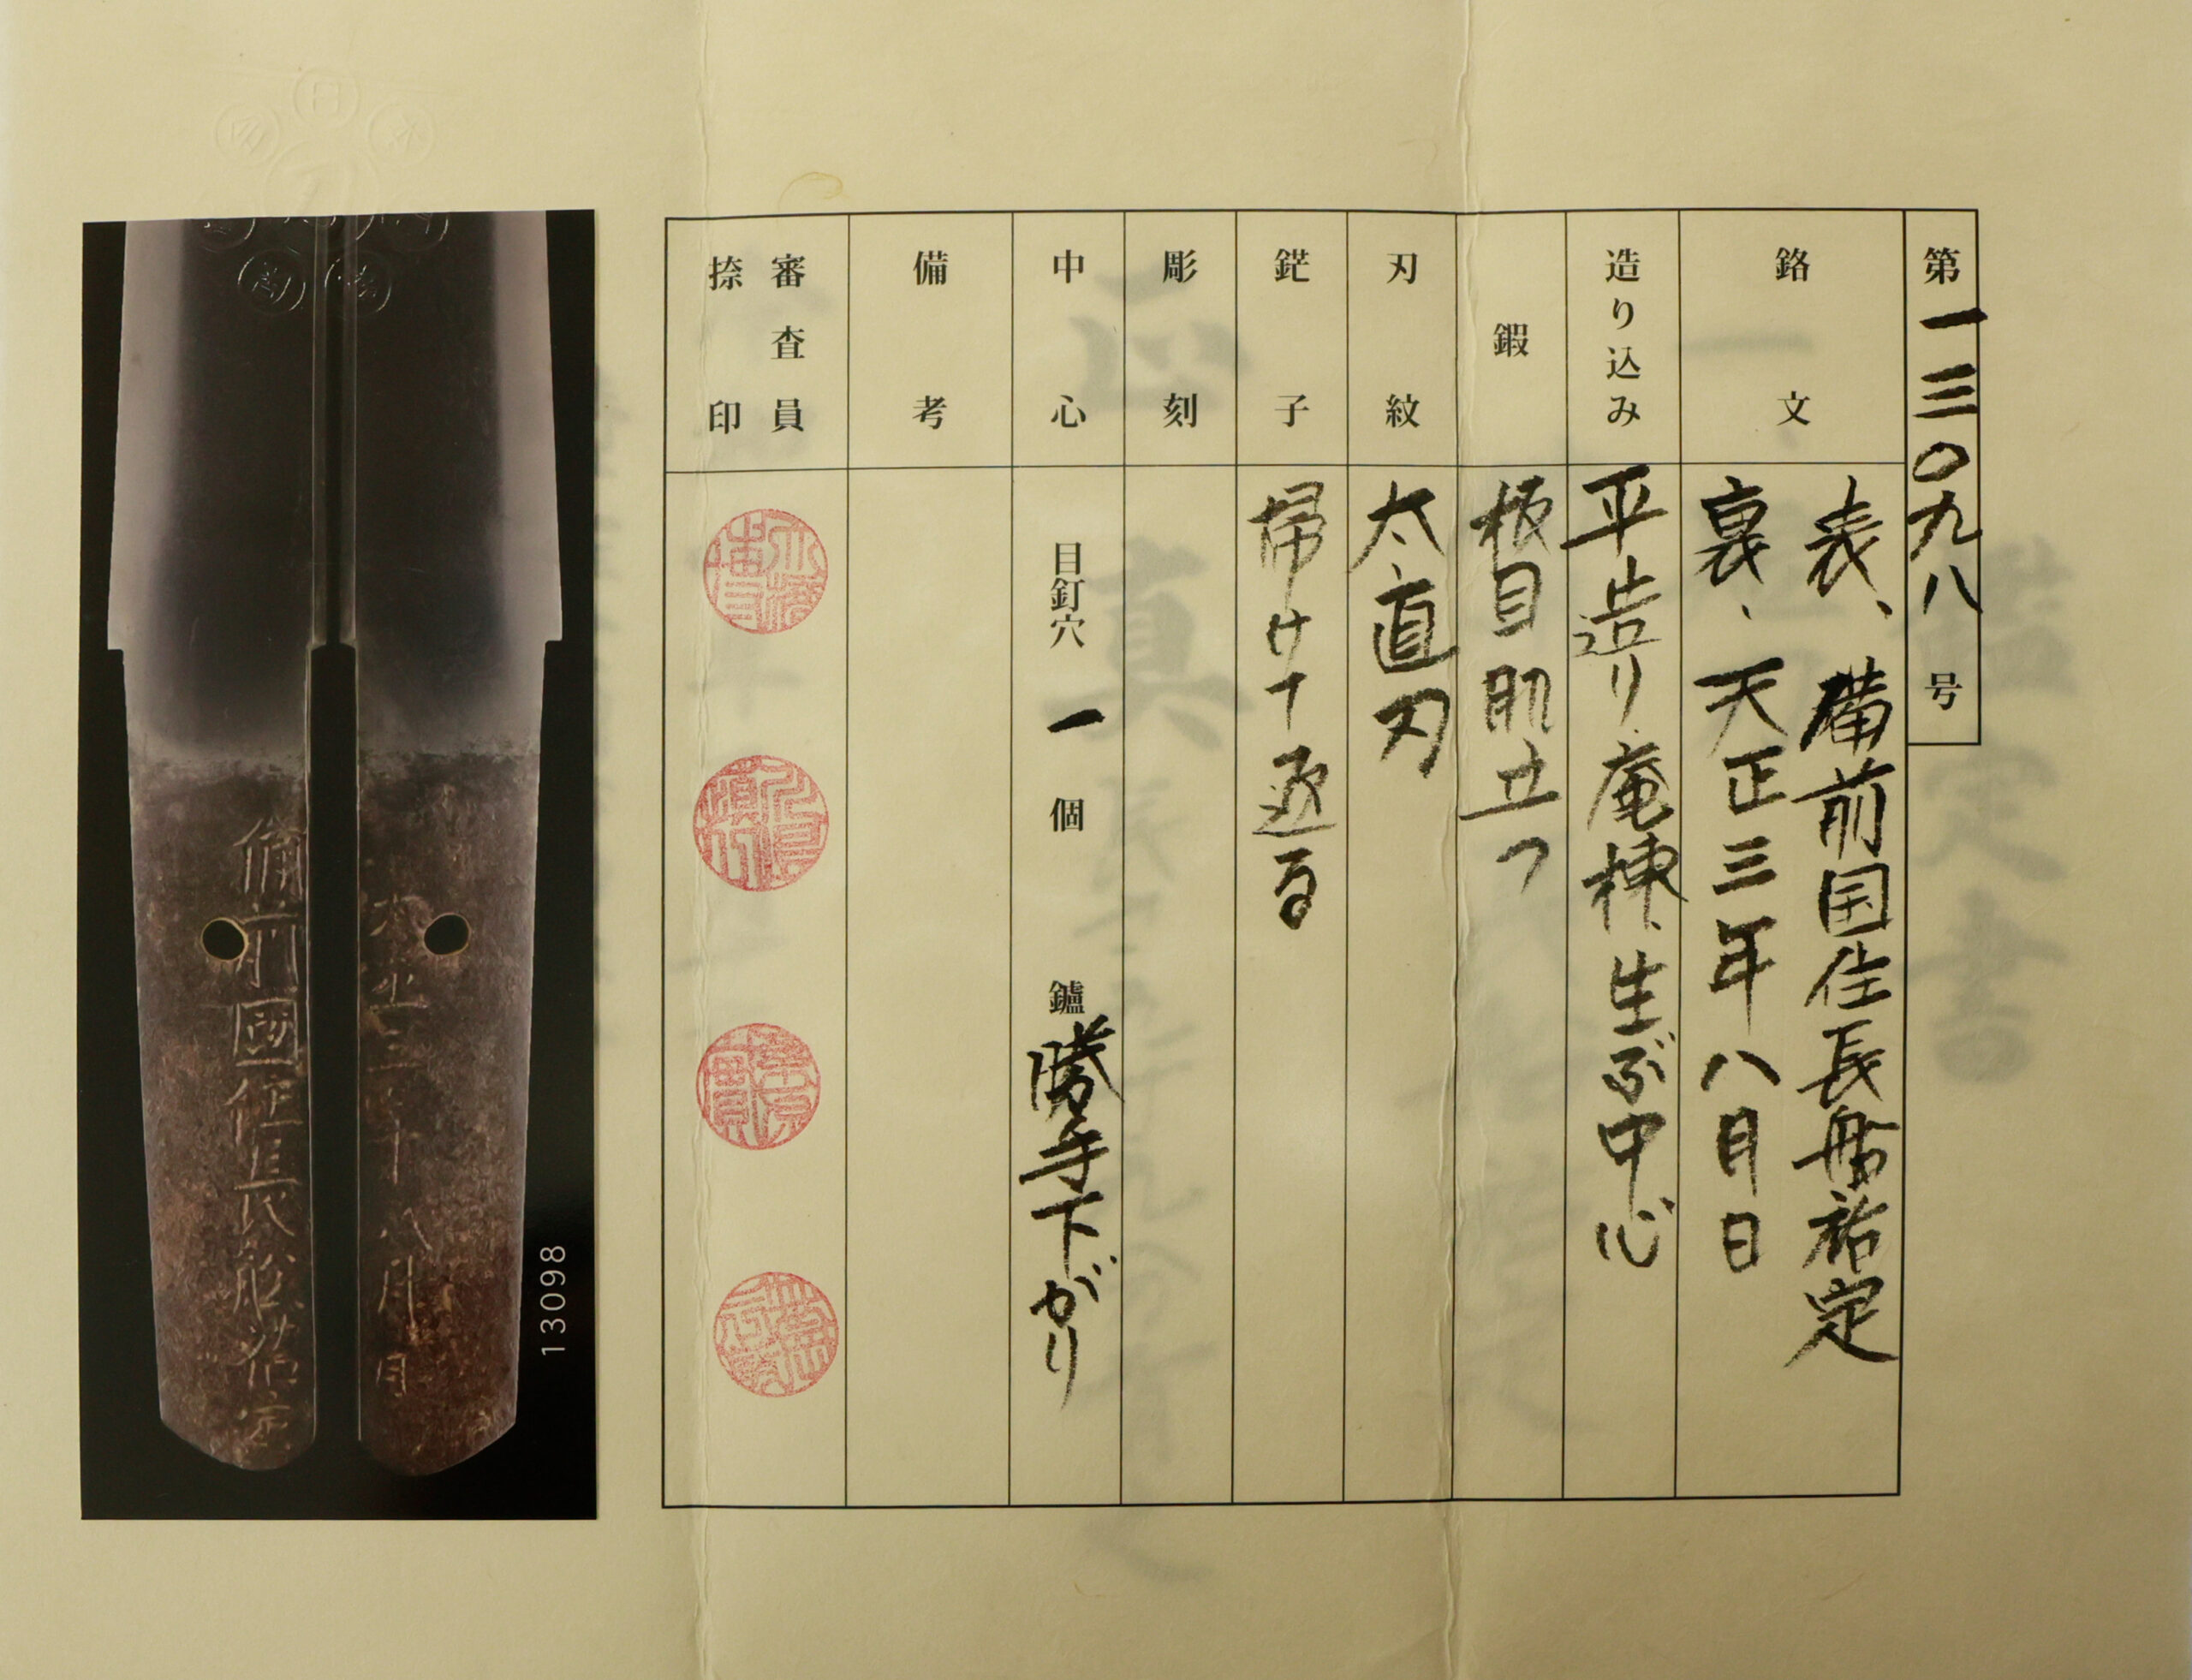 第一三〇九八号
銘文
表、備前国住長船祐定
裏、天正三年八月日
造り込み
平造り庵棟、生ぶ中心
鍜
板目肌立つ
刃紋
太直刃
鋩子
掃けて返る
彫刻
中心
目釘穴 一 個 鑢 勝手下がり
備考
審査員
捺印
備前國住長船祐定
天正三年八月日
13098